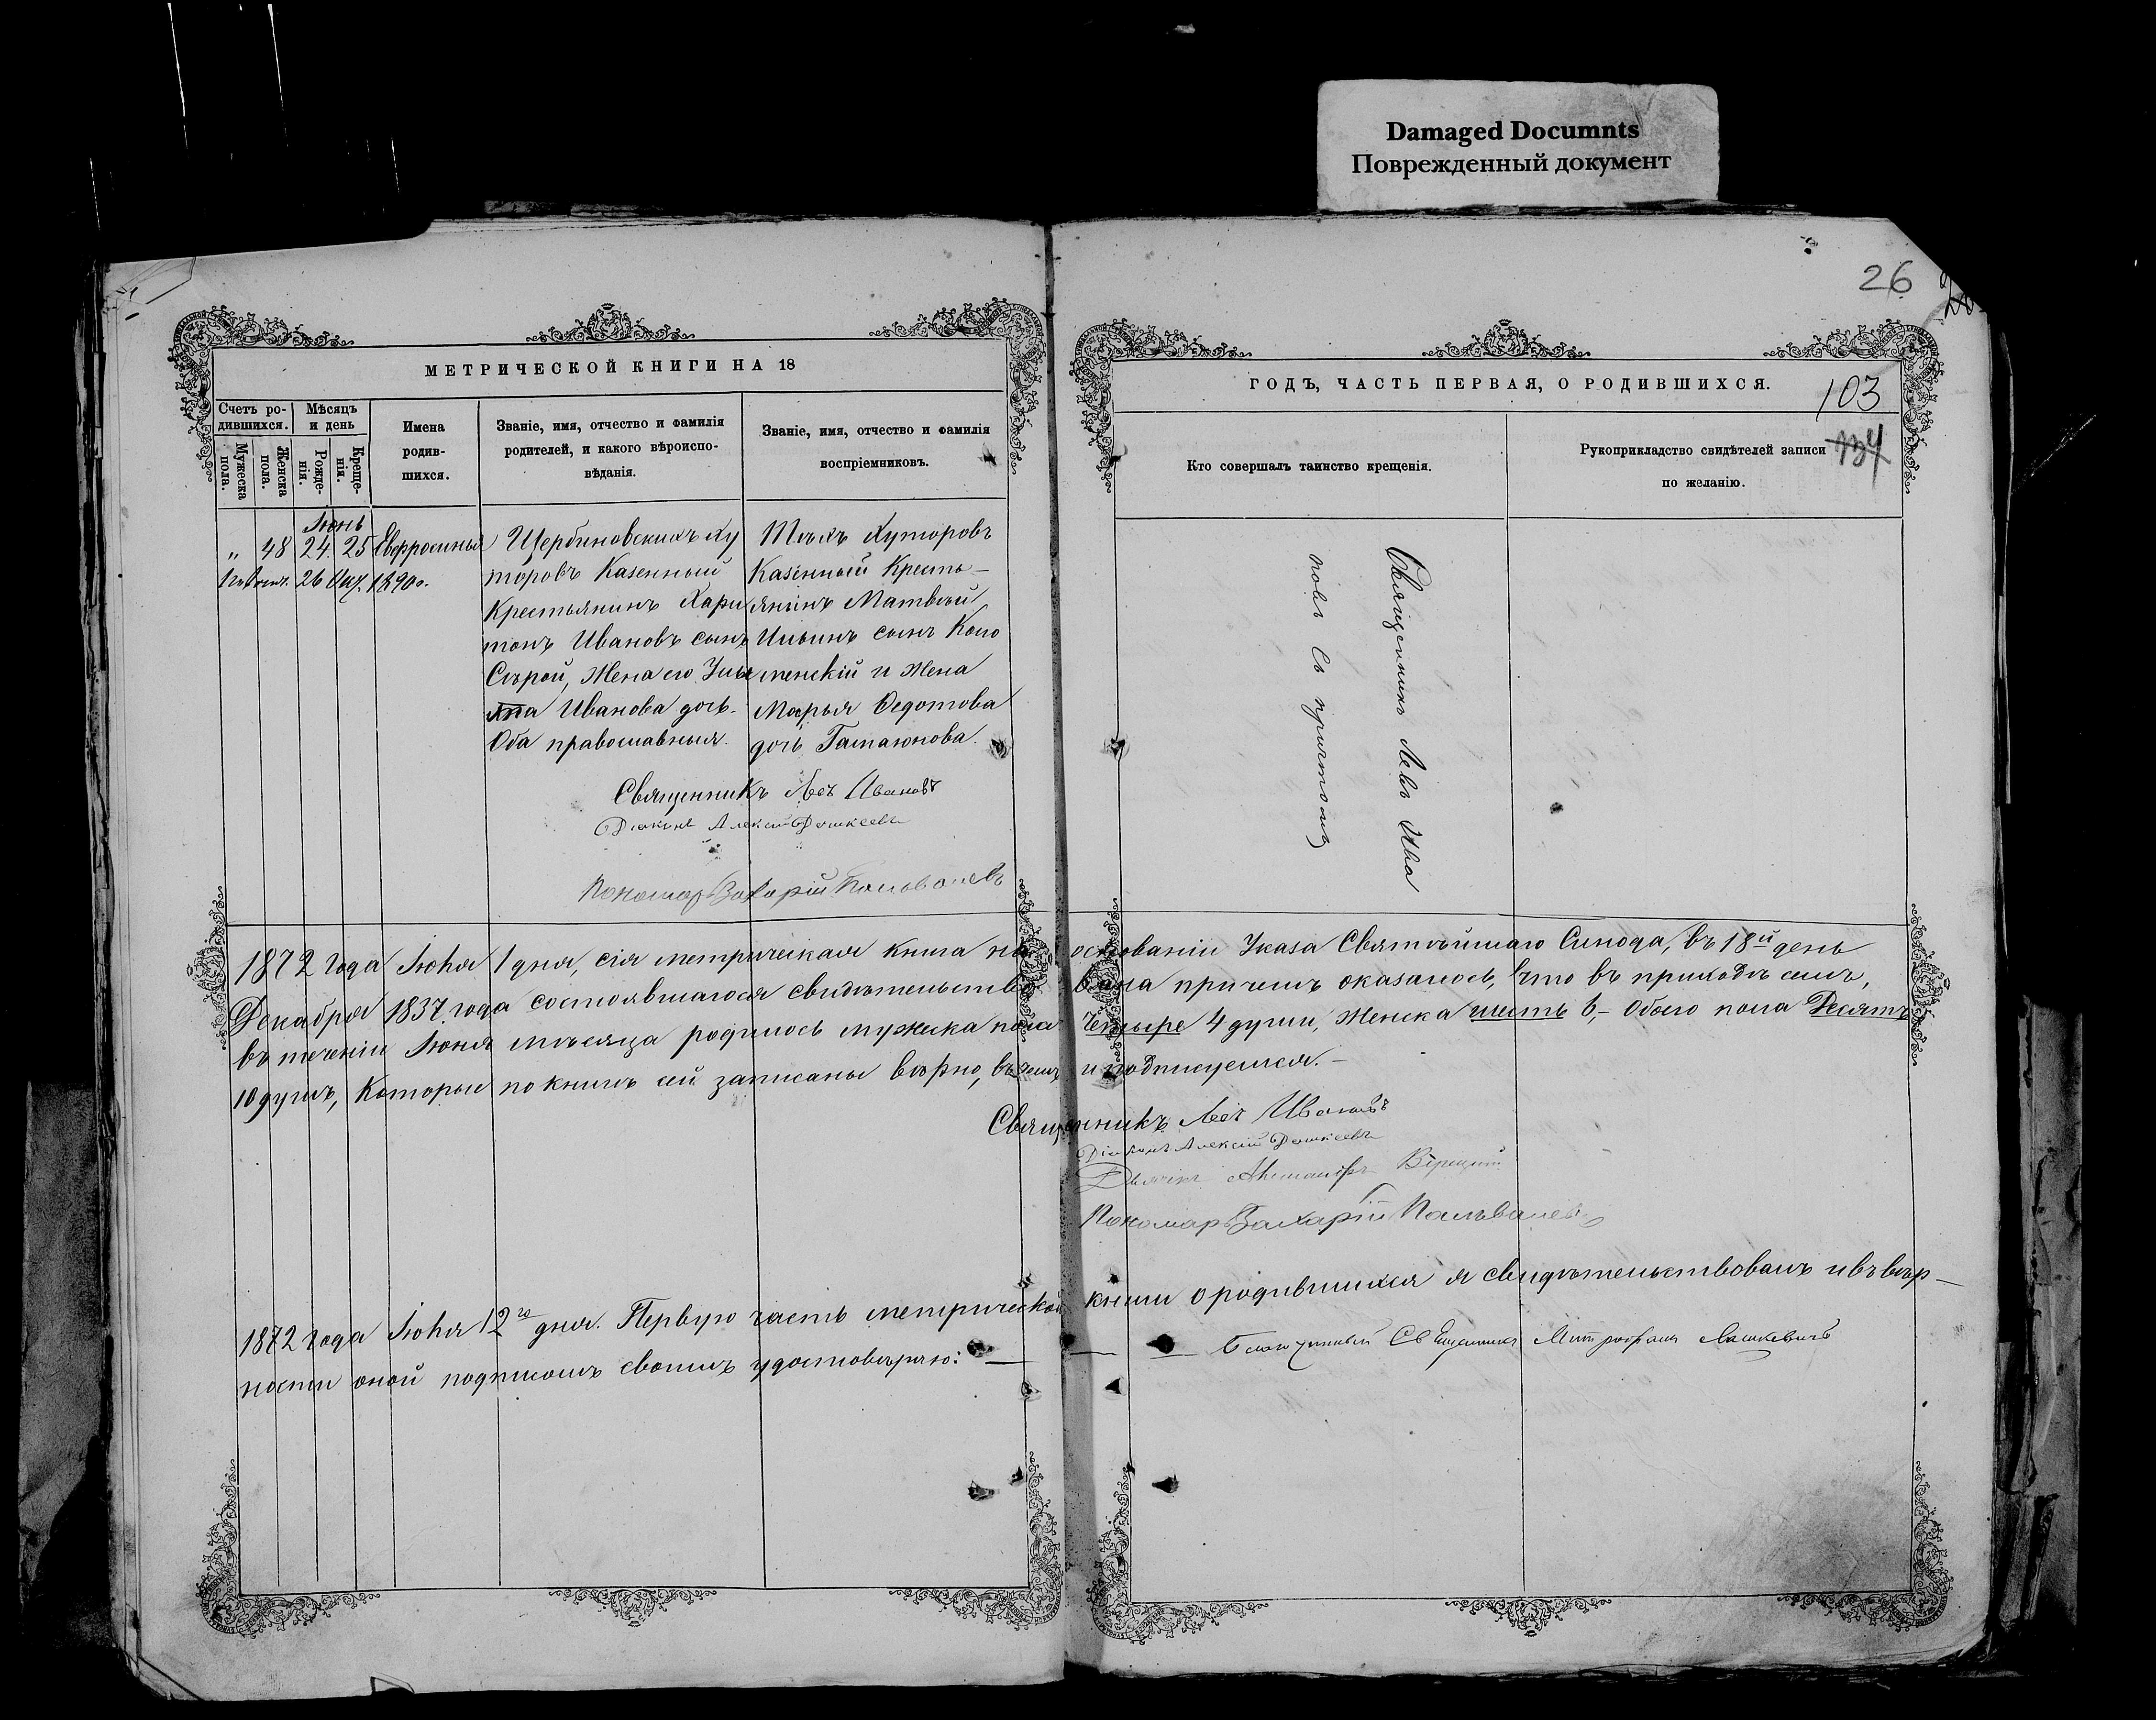 Damaged Documnts
Поврежденный документ
26
МЕТРИЧЕСКОЙ КНИГИ НА 18
Счетъ ро-
дившихся.
Мужеска
пола.
Женска
пола.
Мѣсяцъ
и день
Рожде-
нія.
Креще-
нія.
Имена
родив-
шихся.
Званіе, имя, отчество и фамилія
родителей, и какого вѣроиспо-
вѣданія.
Званіе, имя, отчество и фамилія
воспріемниковъ.
Іюнь
„ 48 24. 25 Евфросинья
26 1890 г.
Щербиновскихъ Ху
торовъ Казенный
Крестьянинъ Хари
тонъ Ивановъ сынъ
Сѣрой, Жена его Улья
на Иванова дочь.
Оба православныя.
Тѣхъ Хуторовъ
Казенный Кресть-
янинъ Матвѣй
Ильинъ сынъ Коло
менскій и Жена
Марья Федотова
дочь Гатаюнова.
Священникъ Левъ Ивановъ
Діаконъ Алексій Дашкеевъ
Пономарь Захарій
ГОДЪ, ЧАСТЬ ПЕРВАЯ, О РОДИВШИХСЯ.
103
134
Кто совершалъ таинство крещенія.
Рукоприкладство свидѣтелей записи
по желанію.
Священникъ Левъ Ива
новъ съ причтомъ
1872 года Іюля 1 дня, сія метрическая книга на основаніи Указа Святѣйшаго Синода, въ 18й день
Декабря 1837 года состоявшагося свидѣтельствована причемъ оказалось, что въ приходѣ семъ,
въ теченіи Іюня мѣсяца родилось мужска пола Четыре 4 души, Женска шесть 6,- Обоего пола Десять
10 душъ, Которые по книгѣ сей записаны вѣрно, въ чемъ и подписуемся.-
Священникъ Левъ Ивановъ
Діаконъ Алексій Дашкеевъ
Дьячекъ
Пономарь Захарій
1872 года Іюля 12го дня. Первую часть метрической книги о родившихся я свидѣтельствовалъ и въ вѣр-
ности оной подписомъ своимъ удостовѣряю: — Благочинный Священникъ Митрофанъ Лашкевичъ